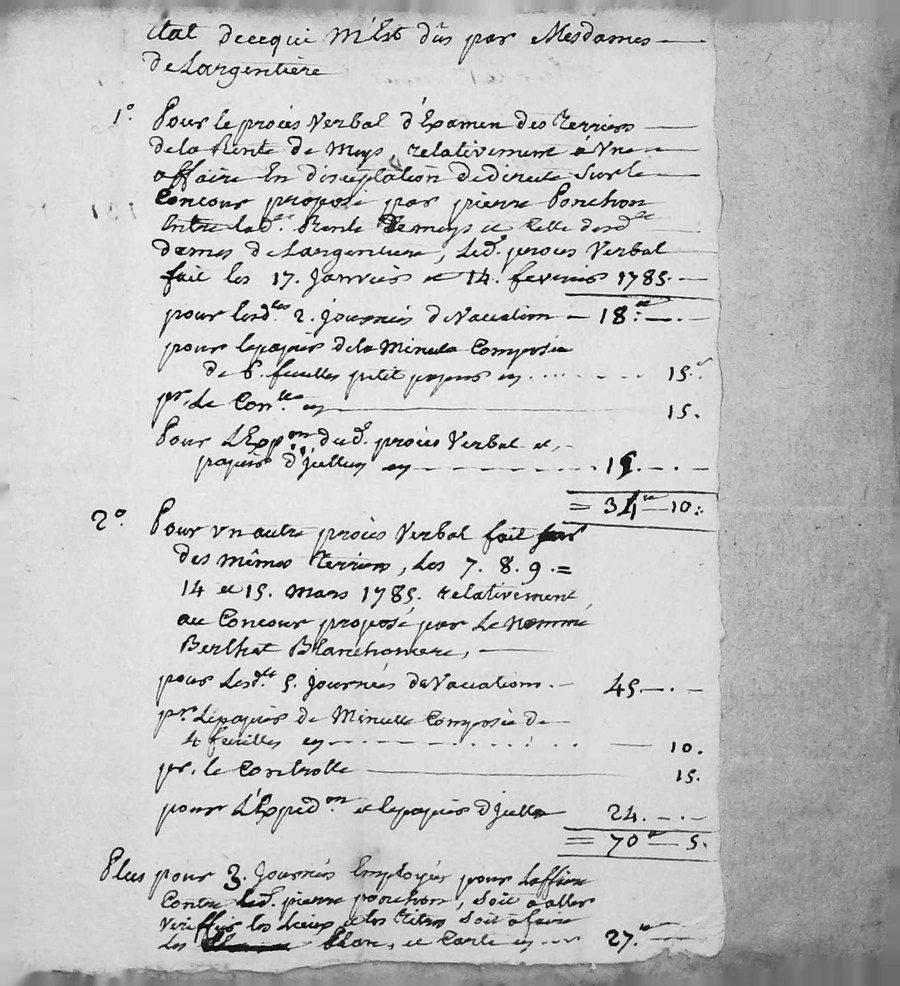 état decequi m'Est dûs par Mesdames
De Largentiere
1°. Pour le procès Verbal d'Examen des terriers
dela Rente de Meys, relativement à Une
affaire En disceptation dedirecte Sur le
Concour proposé par pierre Ponchon
Entre lad.e Rente Demeys et Celle desd.es
dames de Largentiere, Led. procès Verbal
fait les 17. Janvier et 14. fevrier 1785.
pour lesd.tes 2. Journées de Vacation — 18.# — . —
pour lepapier dela Minute Composée
de 6. feuilles petit papier cy . . . . 15.s
pr. Le Con.lle cy 15.
Pour L'Exp.on dud. procès Verbal et,
papier d'Icelluy cy 15. — . —
= 34.# — 10 :
2°. Pour un autre procès Verbal fait
des mêmes terriers, Les 7. 8. 9. =
14 et 15. Mars 1785. relativement
au Concour proposé par Le Nommé
Berthet
pour Lesd.tes 5. Journées de Vacations. — 45. — . —
pr. Lepapier de Minute Composée de
4 feuilles cy — — — . . . . — 10.
pr. le Controlle 15.
pour L'Expéd.on et lepapier d'Icelle 24. — . —
= 70.# — 5.
Plus pour 3. Journées Employées pour Laffaire
Contre Led. pierre ponchon, Soit à aller
Veriffier les Lieux et les titres Soit à faire
Les Plan, et Carte cy — — 27.# — . —